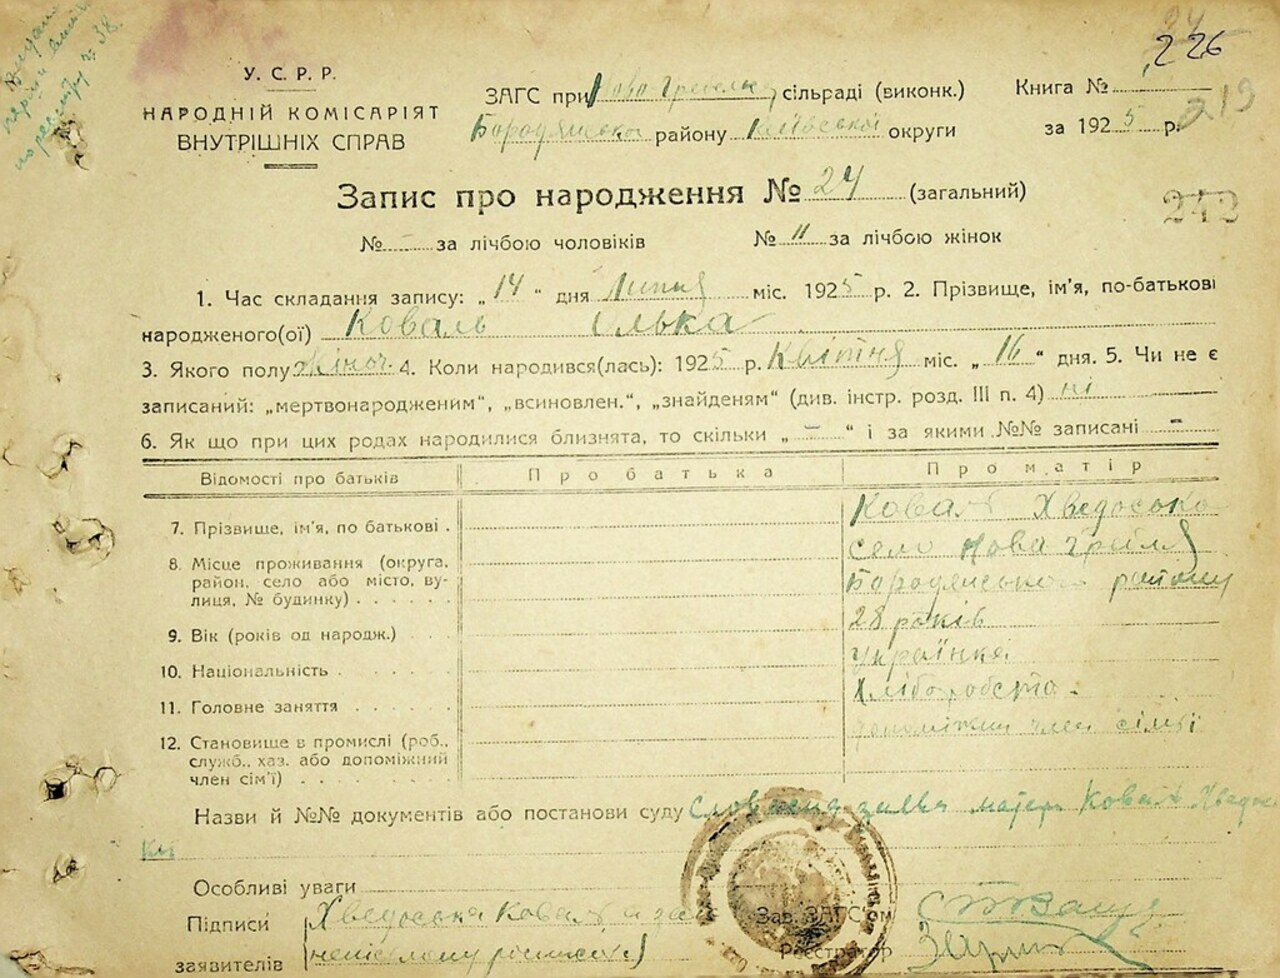 226
219
У. С. Р. Р.
НАРОДНІЙ КОМІСАРІЯТ
ВНУТРІШНІХ СПРАВ
ЗАГС при Ново Гребельс сільраді (виконк.)
Бородянської району Київської округи
Книга №
за 1925 р.
Запис про народження № 24 (загальний)
242
№ - за лічбою чоловіків № 11 за лічбою жінок
1. Час складання запису: „14“ дня Липня міс. 1925 р. 2. Прізвище, ім'я, по-батькові
народженого(ої) Коваль Олька
3. Якого полу жіноч. 4. Коли народився(лась): 1925 р. Квітня міс. „16“ дня. 5. Чи не є
записаний: „мертвонародженим“, „всиновлен.“, „знайденям“ (див. інстр. розд. III п. 4) ні
6. Як що при цих родах народилися близнята, то скільки „ – “ і за якими №№ записані –
Відомості про батьків Про батька Про матір
7. Прізвище, ім'я, по батькові . Коваль Хведоська
8. Місце проживання (округа, село Нова Гребля
район, село або місто, ву-
лиця, № будинку) . . . . . . Бородянського району
9. Вік (років од народж.) . . 28 років
10. Національність . . . . . . українка
11. Головне заняття . . . . . . Хліборобств
12. Становище в промислі (роб., допоміжни член сімьі
служб., хаз. або допоміжний
член сім'ї) . . . . . . . .
Назви й №№ документів або постанови суду Словесна заява матері Коваль Хведось
ки
Особливі уваги
Підписи Хведоська Коваль а за
заявителів неписьмену росписався)
Зав. ЗАГС'ом
Реєстратор